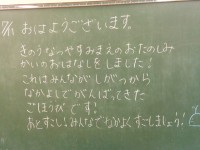 7/11 おはようございます。
きのうなつやすみまえのおたのしみ
かいのおはなしをしました!
これはみんなが1がっきから
なかよしでがんばってきた
ごほうびです!
あとすこし!みんなでなかよくすごしましょう!